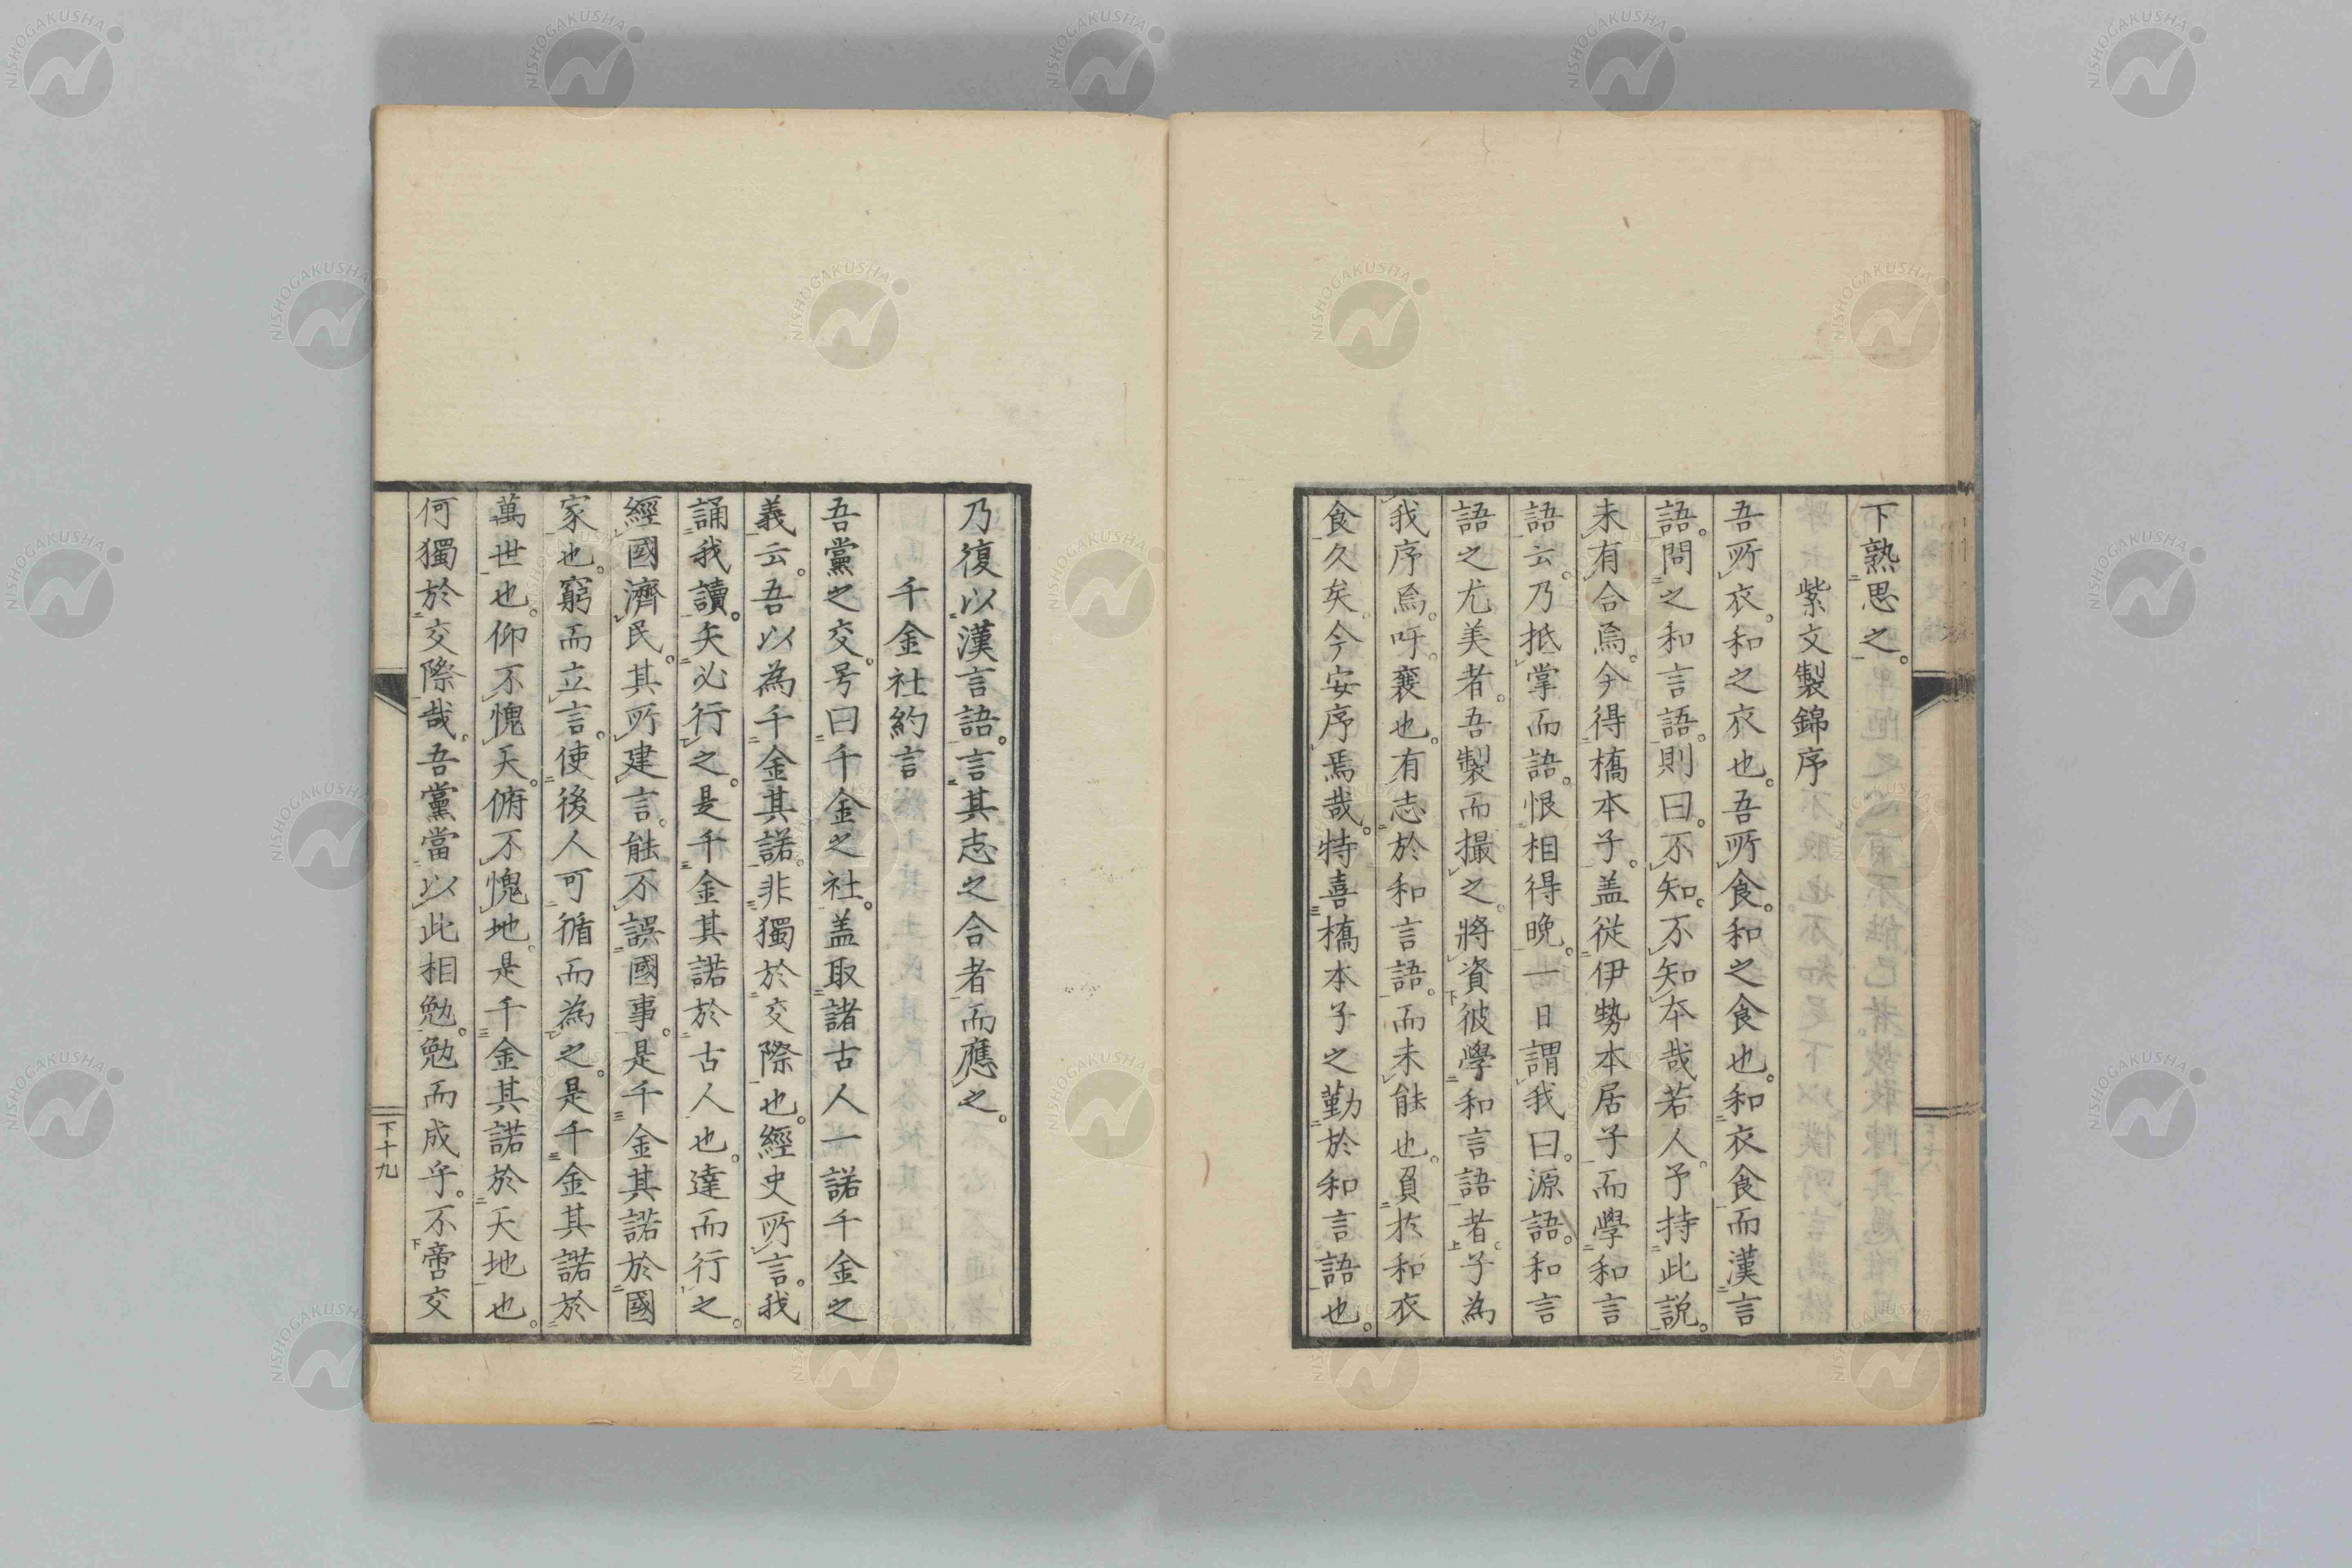 下熟思之。
紫文製錦序
吾所衣。和之衣也。吾所食。和之食也。和衣食而漢言
語。問之和言語。則曰。不知。不知。本哉若人。予持此説。
未有合焉。今得橋本子。盖從伊勢本居子而學和言
語云。乃抵掌而語。恨相得晩。一日謂我曰。源語。和言
語之尤美者。吾製而撮之。將資彼學和言語者。子為
我序焉。呀襃也。有志於和言語。而未能也。負於和衣
食久矣。今安序焉哉。特喜橋本子之勤於和言語也。
乃復以漢言語。言其志之合者而應之。
千金社約言
吾黨之交。号曰千金之社。盖取諸古人一諾千金之
義云。吾以為千金其諾。非獨於交際也。經史所言。我
誦我讀。矢必行之。是千金其諾於古人也。達而行之。
經國濟民。其所建言。能不誤國事。是千金其諾於國
家也。窮而立言。使後人可循而為之。是千金其諾於
萬世也。仰不愧天。俯不愧地。是千金其諾於天地也。
何獨於交際哉。吾黨當以此相勉。勉而成乎。不啻交
下十九
NISHOGAKUSHA